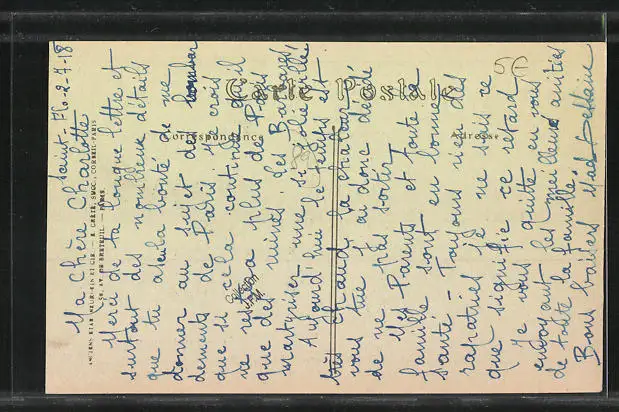 Saint-Flo-2-7-18
Ma chère Charlotte
Merci de ta longue lettre et
surtout des nouveaux détails
que tu as eu la bonté de me
donner au sujet des bombar
dements de Paris. Je crois
que si cela continue il
ne restera plus de Paris
que des ruines. Les Barbares
martyriser une si jolie ville
Aujourd'hui le temps est
très chaud, la chaleur
vous tue j'ai donc décidé
de ne pas sortir.
Mes Parents et toute la
famille sont en bonne
santé. Toujours rien des
rapatriés je ne sais ce
que signifie ce retard.
Je vous quitte en vous
envoyant les meilleures amitiés
de toute la famille.
Bons baisers
Carte Postale
Correspondance
Adresse
ANCIENS ETAB. NEURDEIN ET CIE. — E. CRÉTÉ, SUCC. CORBEIL-PARIS
52, AV. DE BRETEUIL. — PARIS.